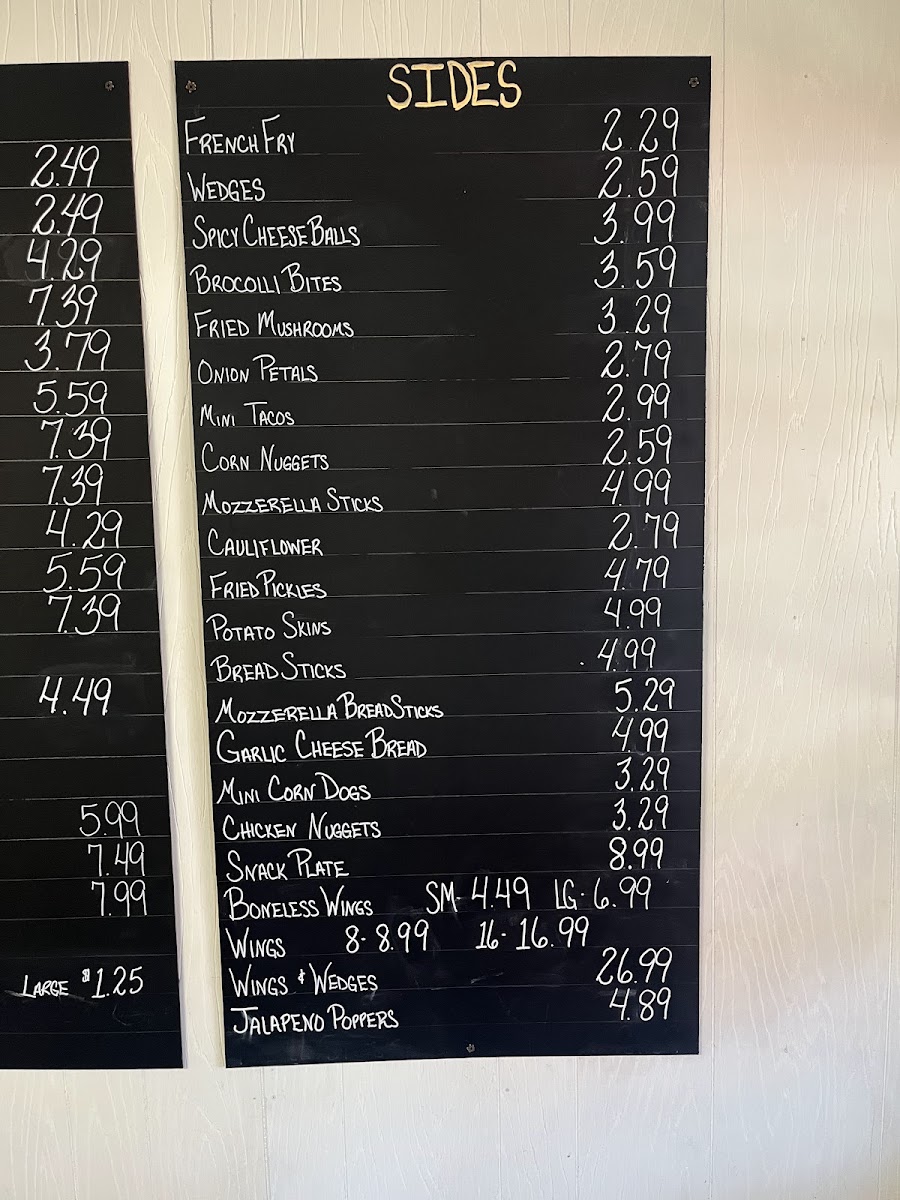 2.49
2.49
4.29
7.39
3.79
5.59
7.39
7.39
4.29
5.59
7.39
4.49
5.99
7.49
7.99
LARGE $1.25
SIDES
FRENCH FRY 2.29
WEDGES 2.59
SPICY CHEESE BALLS 3.99
BROCOLLI BITES 3.59
FRIED MUSHROOMS 3.29
ONION PETALS 2.79
MINI TACOS 2.99
CORN NUGGETS 2.59
MOZZERELLA STICKS 4.99
CAULIFLOWER 2.79
FRIED PICKLES 4.79
POTATO SKINS 4.99
BREAD STICKS 4.99
MOZZERELLA BREADSTICKS 5.29
GARLIC CHEESE BREAD 4.99
MINI CORN DOGS 3.29
CHICKEN NUGGETS 3.29
SNACK PLATE 8.99
BONELESS WINGS SM-4.49 LG-6.99
WINGS 8-8.99 16-16.99
WINGS & WEDGES 26.99
JALAPENO POPPERS 4.89